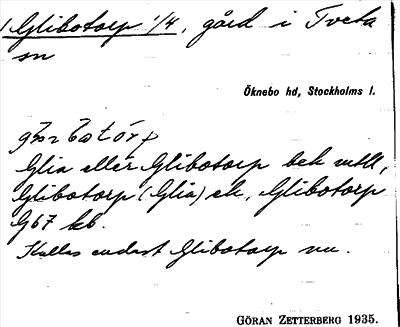 Glibotorp 1/4, gård i Tveta
sn
Öknebo hd, Stockholms l.
Glia eller Glibotorp bek uttl,
Glibotorp (Glia) ek, Glibotorp
G67 kb.
Kallas endast Glibotorp nu.
GÖRAN ZETTERBERG 1935.